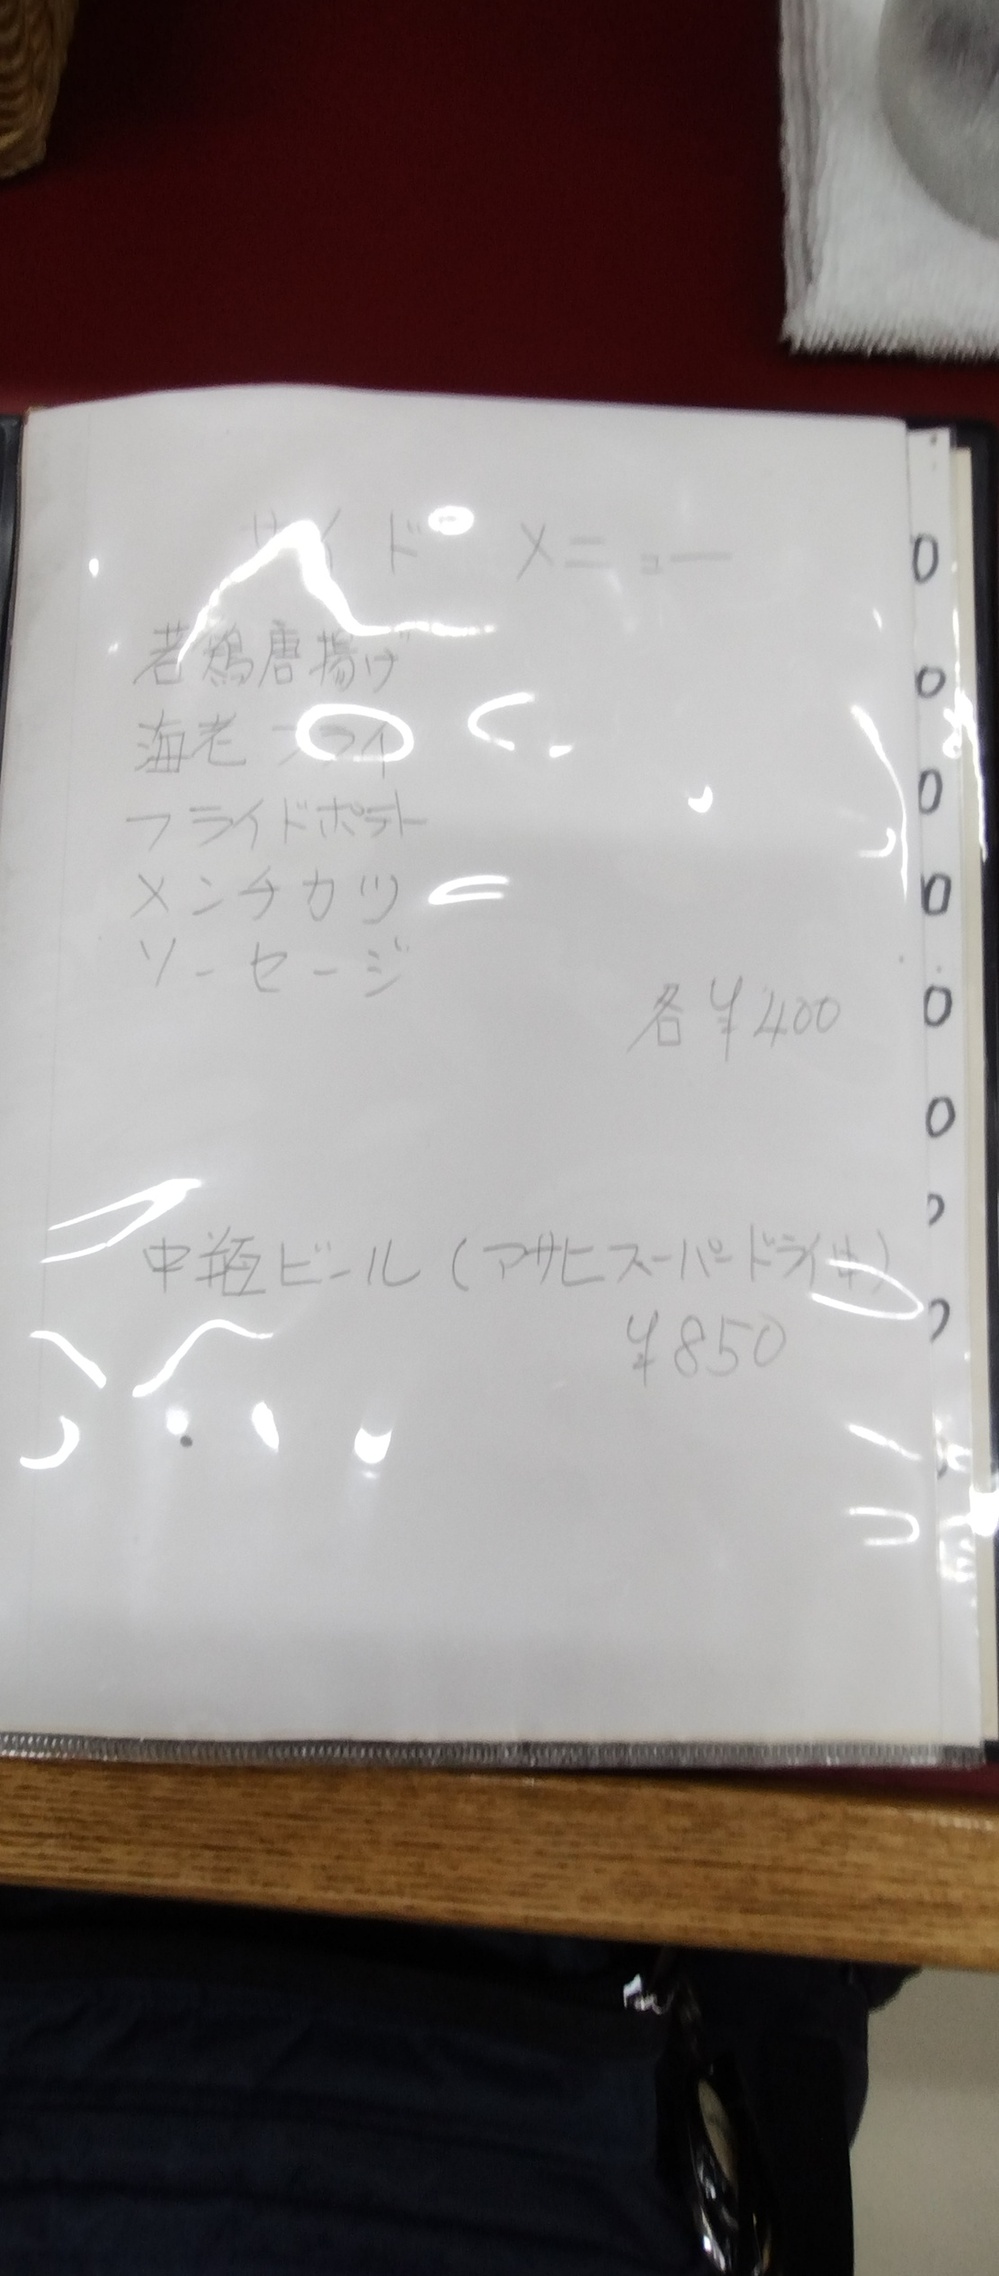 サイド メニュー
若鶏唐揚げ
海老フライ
フライドポテト
メンチカツ
ソーセージ
各¥400
中瓶ビール(アサヒスーパードライ中)
¥850
0
0
0
0
0
0